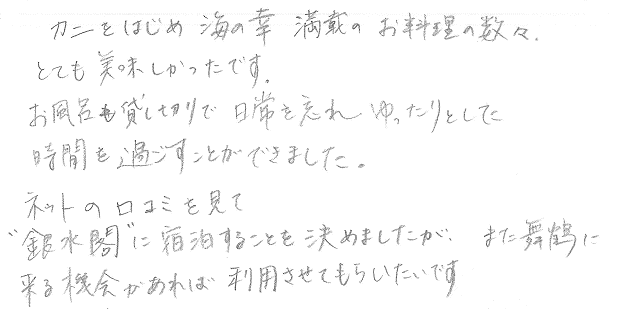 カニをはじめ 海の幸 満載の お料理の数々、
とても美味しかったです。
お風呂も貸し切りで 日常を忘れ ゆったりとした
時間を過ごすことができました。
ネットの口コミを見て
"銀水閣"に宿泊することを決めましたが、また舞鶴に
来る機会があれば 利用させてもらいたいです